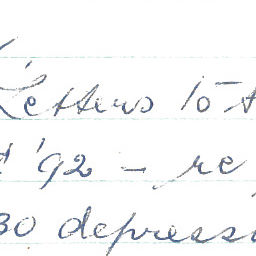 Letters to t
'92 - re
30 depress